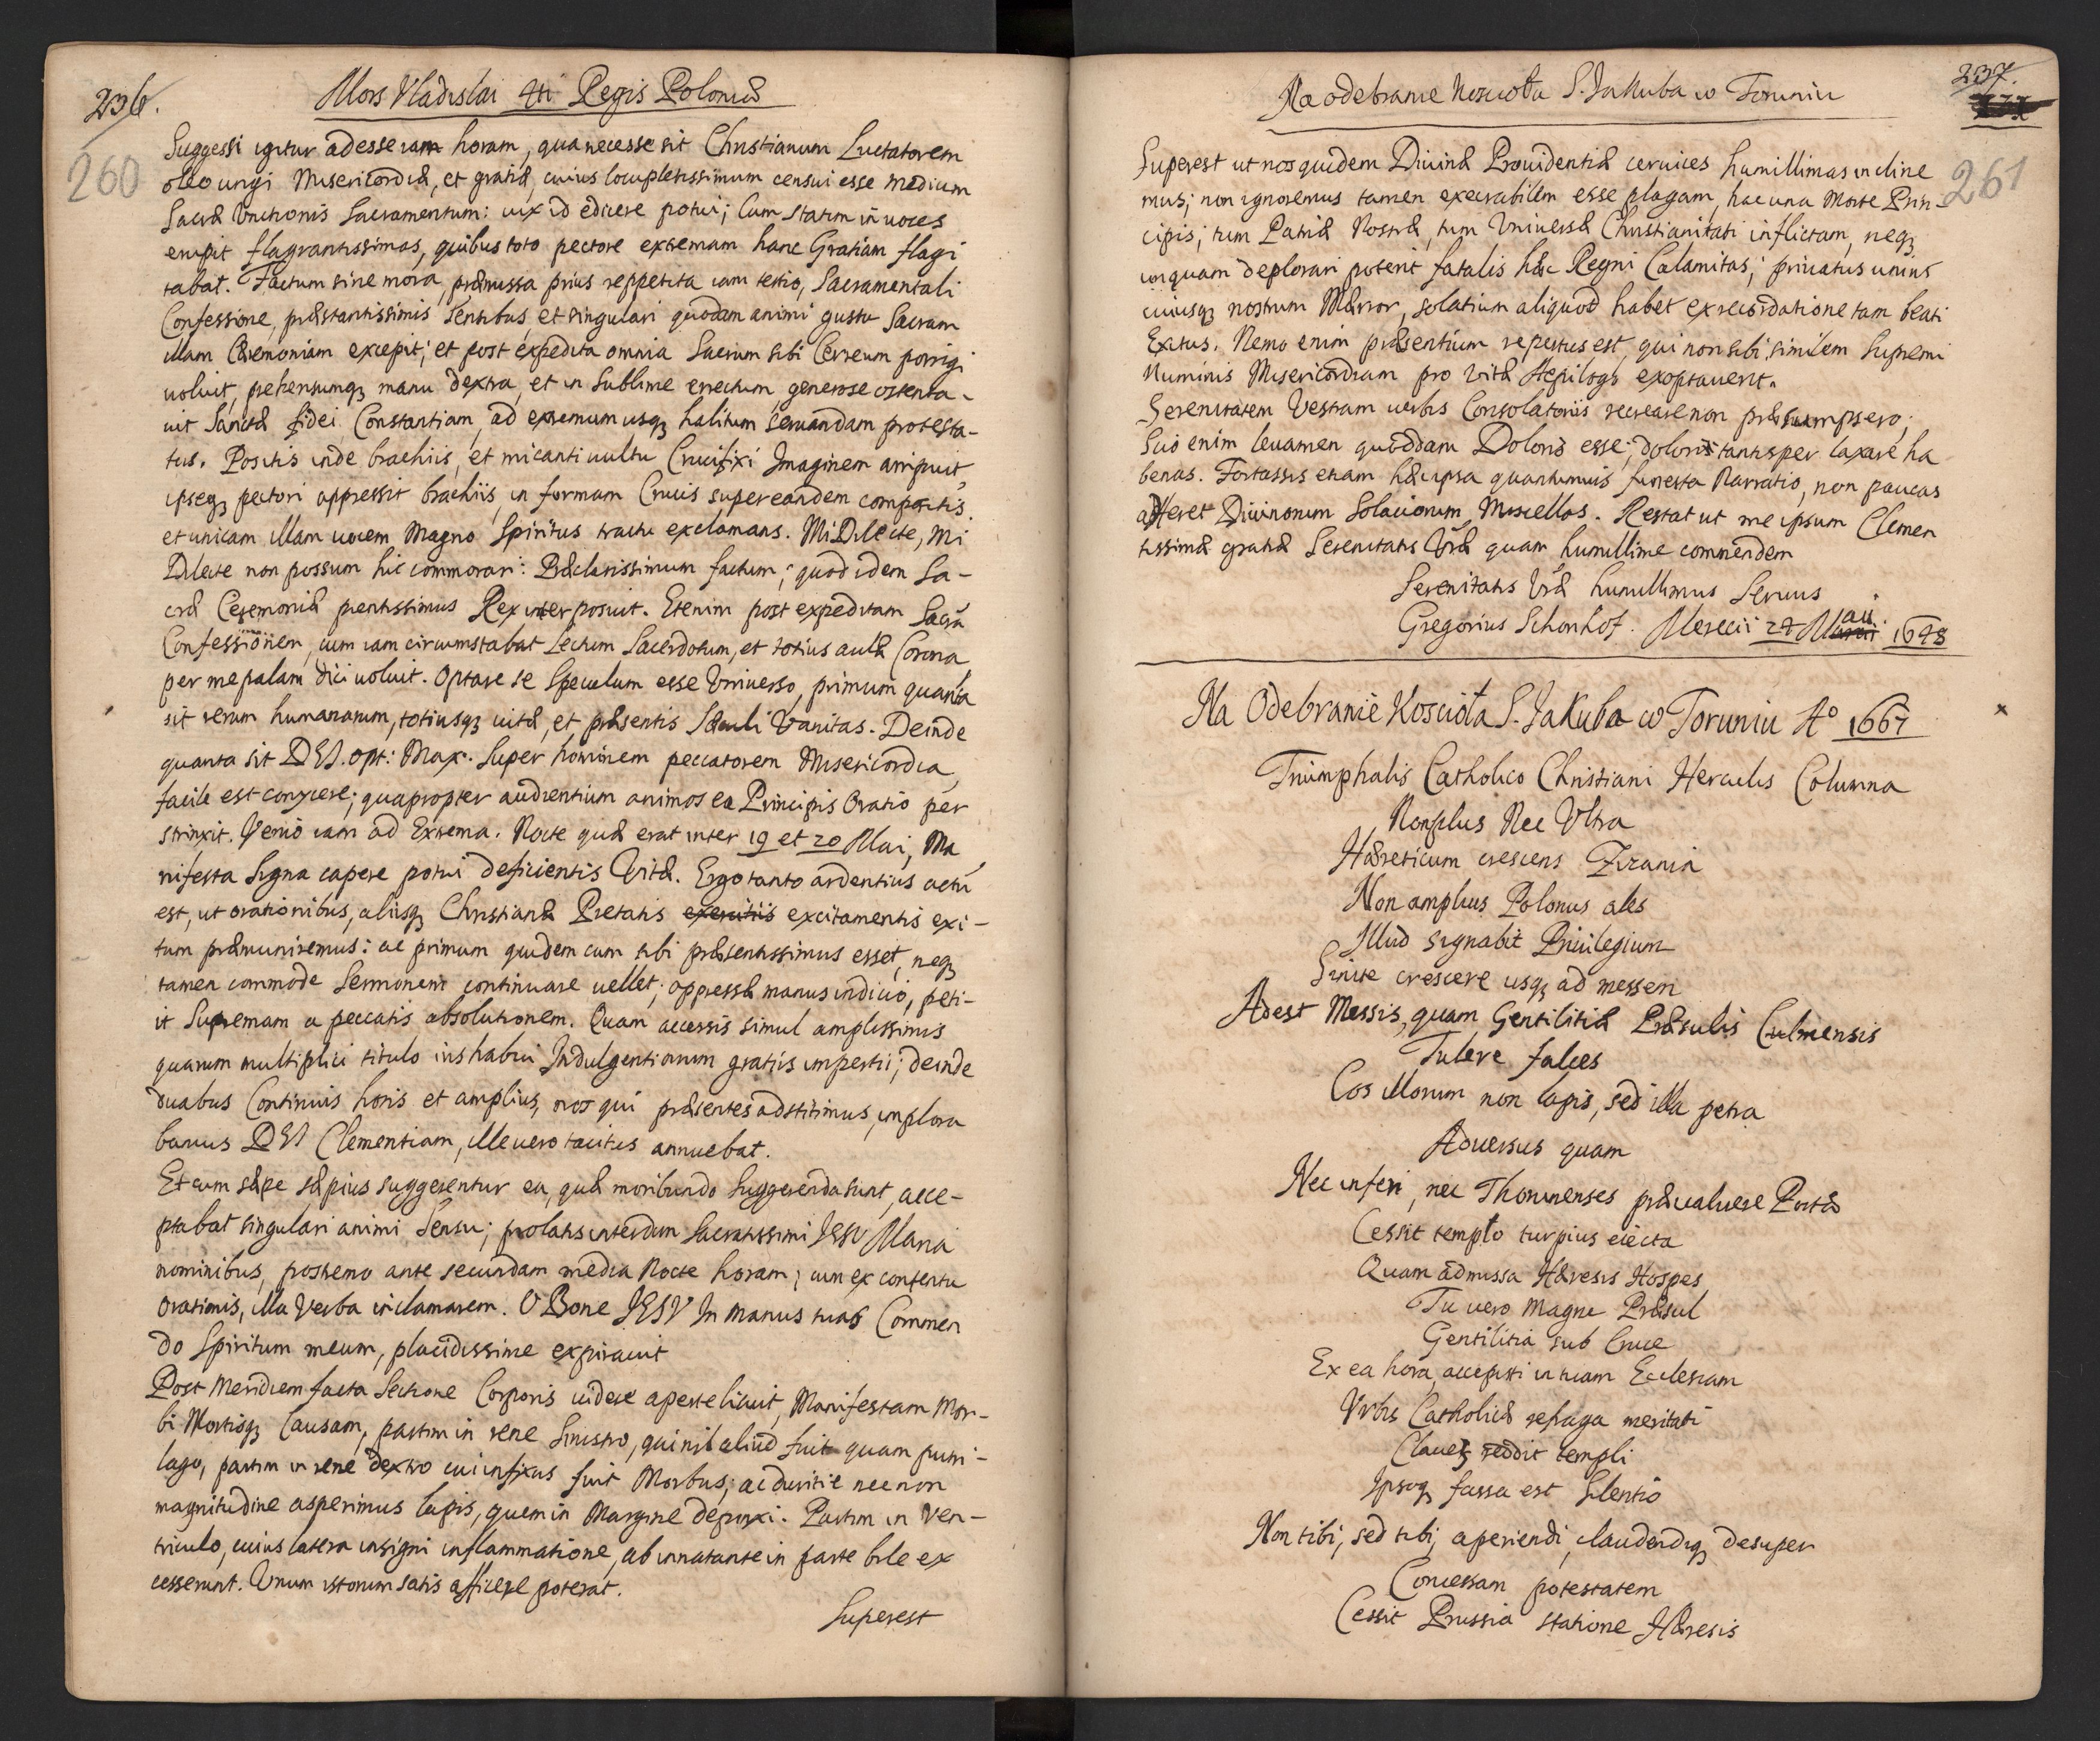 236.
260
Mors Vladislai 4ti Regis Poloniæ
Suggessi igitur adesse iam horam, qua necesse sit Christianum Luctatorem
oleo ungi Misericordiæ, et gratiæ, cuius locupletissimum censui esse medium
Sacræ Vnctionis Sacramentum: uix id edicere potui; Cum statim in uoces
erupit flagrantissimas, quibus toto pectore extremam hanc Gratiam flagi
tabat. Factum sine mora, præmissa prius reppetita iam tertio, Sacramentali
Confessione, præstantissimis Sensibus et singulari quodam animi gustu Sacram
illam Cæremoniam excepit; et post expedita omnia Sacrum sibi Cereum porrigi
uoluit, prehensumq; manu dextra, et in Sublime erectum, generose ostenta-
uit Sanctæ fidei Constantiam, ad extremum usq; halitum seruandam protesta-
tus. Positis inde brachiis, et micanti uultu Crucifixi Imaginem arripuit,
ipseq; pectori appressit brachiis, in formam Crucis super eandem compactis
et unicam illam uocem Magno Spiritus tractu exclamans. Mi Dilecte, Mi
Dilecte non possum hic commorari: Præclarissimum factum; quod idem Sa-
cræ Ceremoniæ pientissimus Rex interposuit. Etenim post expeditam Sacrã
Confessionem, cum iam circumstabat Lectum Sacerdotum, et totius aulæ Corona
per me palam dici uoluit. Optare se Speculum esse Vniuerso, primum quanta
sit rerum humanarum, totiusq; uitæ, et præsentis Sæculi Vanitas. Deinde
quanta sit DEI. opt: Max. Super hominem peccatorem Misericordia,
facile est conijcere; quapropter audientium animos ea Principis Oratio per
strinxit. Venio iam ad Extrema. Nocte quæ erat inter 19 et 20 Mai, Ma
nifesta Signa capere potui deficientis Vitæ. Ergo tanto ardentius actũ
est, ut orationibus, aliisq; Christianæ Pietatis exercitiis excitamentis exi-
tum præmuniremus: ac primum quidem cum sibi præsentissimus esset, neq;
tamen commode Sermonem continuare uellet; oppressæ manus indicio, peti-
it Supremam a peccatis absolutionem. Quam accessis simul amplissimis
quarum multiplici titulo ius habui Indulgentiarum gratiis impertii; deinde
duabus Continuis horis et amplius, nos qui præsentes adstitimus, implora
bamus DEI Clementiam, ille uero tacitus annuebat.
Et cum sæpe sæpius suggerentur ea, quæ moribundo Suggerenda sunt, acce-
ptabat singulari animi Sensu; prolatis interdum Sacratissimi IESV Maria
nominibus, postremo ante secundam media Nocte horam; cum ex contextu
Orationis, illa Verba inclamarem. O Bone IESV In manus tuas Commen
do Spiritum meum, placidissime expirauit
Post Meridiem facta Sectione Corporis uidere aperte licuit, Manifestam Mor-
bi Mortisq; Causam, partim in rene Sinistro, qui nil aliud fuit quam putri-
lago, partim in rene dextro cui infixus fuit Morbus; ac duritie nec non
magnitudine asperimus lapis, quem in Margine depinxi. Partim in Ven-
triculo, cuius latera insigni inflammatione, ab innatante in parte bile ex
cesserunt. Vnum istorum satis afficere poterat.
Superest
Na odebranie Kosciola S. Jakuba w Toruniu
237.
261
Superest ut nos quidem Diuinæ Prouidentiæ ceruices humillimas incline
mus; non ignoremus tamen execrabilem esse plagam, hac una Morte Prin-
cipis; tum Patriæ Nostræ, tum Vniuersæ Christianitati inflictam, neq;
unquam deplorari poterit fatalis hæc Regni Calamitas; priuatus unius
cuiusq; nostrum Mærror, solatium aliquod habet ex recordatione tam beati
Exitus. Nemo enim præsentium repertus est, qui non sibi similem Supremi
Numinis Misericordiam pro Vitæ Æpilogo exoptauerit.
Serenitatem Vestram uerbis Consolatoriis recreare non præsumpsero;
Scio enim leuamen quoddam Doloris esse; doloris tantisper laxare ha
benas. Fortassis etiam hæc ipsa quantumuis funesta Narratio, non paucas
afferet Diuinorum Solaciorum Miscellas. Restat ut me ipsum Clemen
tissimæ gratiæ Serenitatis Vræ quam humillime commendem
Serenitatis Vræ humillimus Seruus
Gregorius Schonhof. Merecii 24 Maii 1648
Na Odebranie Kosciola S. Jakuba w Toruniu Ao 1667
Triumphalis Catholico Christiani Herculis Columna
Non plus Nec Vltra
Hæreticum crescens Zizania
Non amplius Polonus ales
Illud signabit Priuilegium
Sinite crescere usq; ad messem
Adest Messis, quam Gentilitiæ Præsulis Culmensis
Tulere falces
Cos illorum non lapis, sed illa petra
Aduersus quam
Nec inferi, nec Thorunenses præualuere Portæ
Cessit templo turpius eiecta
Quam admissa Hæresis Hospes
Tu uero Magne Præsul
Gentilitia sub Cruce
Ex ea hora, accepisti in tuam Ecclesiam
Vrbis Catholicæ refuga meritati
Claues reddit templi
Ipsoq; fassa est Silentio
Non tibi, sed sibi, aperiendi, claudendiq; desuper
Concessam potestatem
Cessit Prussia statione Hæresis